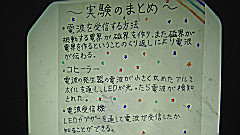 〜実験のまとめ〜
・電波を受信する方法
振動する電界が磁界を作り、また磁界が
電界を作るということのくり返しにより電波
が伝わる。
・コヒーラー
電波の発生器の電波が小さく丸めたアルミ
ホイルを通しLEDが光ったら電波が検知
された。
・電波受信機
LEDやブザーを通して電波が受信したか
知ることができる。